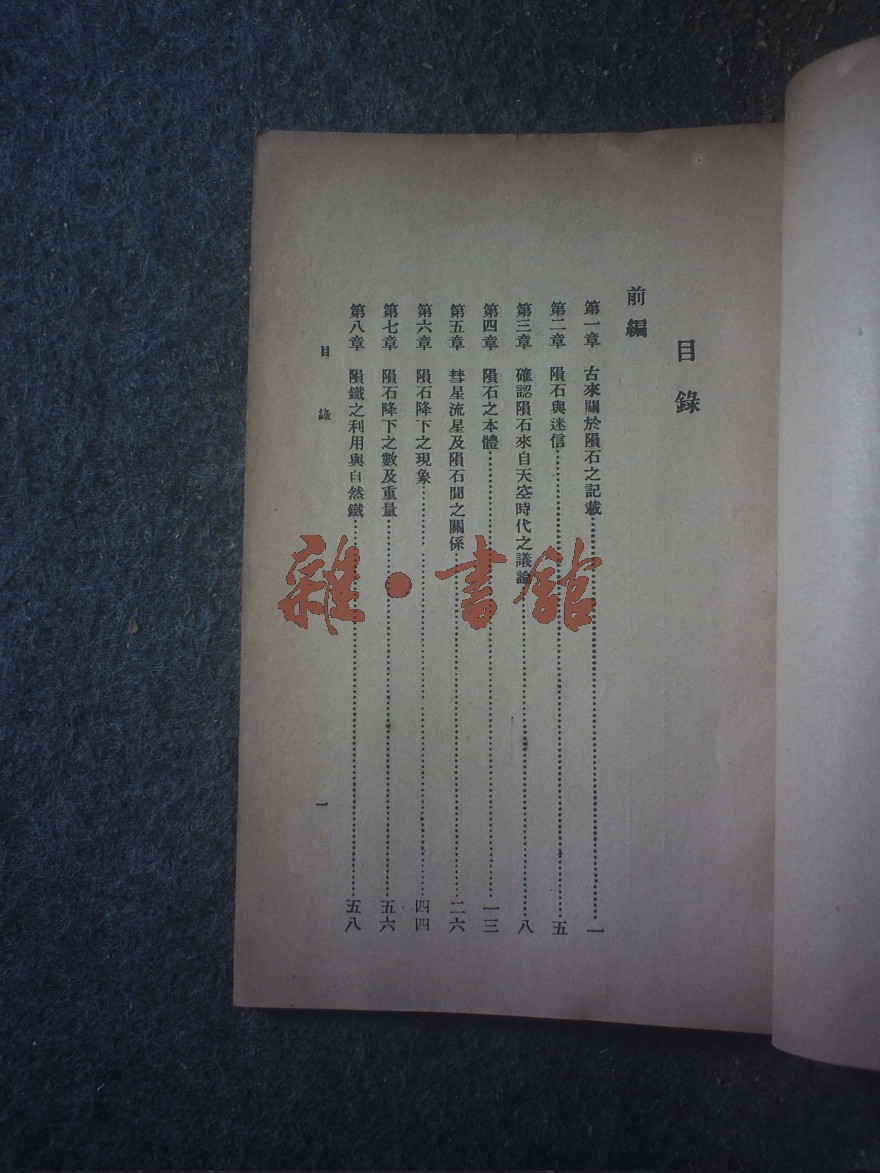 目錄
前編
第一章 古來關於隕石之記載……一
第二章 隕石與迷信……五
第三章 確認隕石來自天空時代之議論……八
第四章 隕石之本體……一三
第五章 彗星流星及隕石間之關係……二六
第六章 隕石降下之現象……四四
第七章 隕石降下之數及重量……五六
第八章 隕鐵之利用與自然鐵……五八
目錄
一
雜·書館